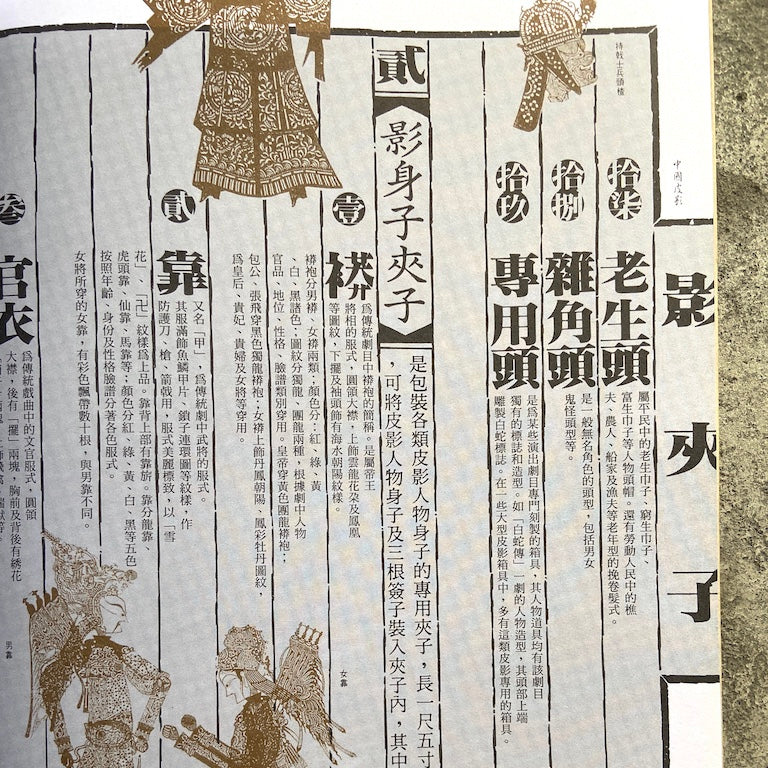 中國皮影
影夾子
持戟士兵頭楂
拾柒
老生頭
屬平民中的老生巾子、窮生巾子、
富生巾子等人物頭帽。還有勞動人民中的樵
夫、農人、船家及漁夫等老年型的挽卷髮式。
拾捌
雜角頭
是一般無名角色的頭型，包括男女
鬼怪頭型等。
拾玖
專用頭
是爲某些演出劇目專門刻製的箱具，其人物道具均有該劇目
獨有的標誌和造型。如「白蛇傳」一劇的人物造型，其頭部上端
雕製白蛇標誌。在一些大型皮影箱具中，多有這類皮影專用的箱具。
貳
影身子夾子
是包裝各類皮影人物身子的專用夾子，長一尺五寸
，可將皮影人物身子及三根簽子裝入夾子內，其中
壹
爲傳統劇目中襻袍的簡稱。是屬帝王
將相的服式，圓領大襟，上飾雲龍花朶及鳳凰
等圖紋，下擺及袖頭飾有海水朝陽紋樣。
襻袍分男襻、女襻兩類；顏色分：紅、綠、黃
、白、黑諸色；圖紋分獨龍、團龍兩種，根據劇中人物
官品、地位、性格、臉譜類別穿用。皇帝穿黃色團龍襻袍；
包公、張飛穿黑色獨龍襻袍；女襻上飾丹鳳朝陽、鳳彩牡丹圖紋，
爲皇后、貴妃、貴婦及女將等穿用。
貳
靠
又名「甲」，爲傳統劇中武將的服式。
其服滿飾魚鱗甲片、鎖子連環圖等紋樣，作
防護刀、槍、箭戟用，服式美麗標致，以「雪
花」、「卍」紋樣爲上品。靠背上部有靠旂。靠分龍靠、
虎頭靠、仙靠、馬靠等；顏色分紅、綠、黃、白、黑等五色
按照年齡、身份及性格臉譜分著各色服式。
女將所穿的女靠，有彩色飄帶數十根，與男靠不同。
叁
官衣
爲傳統戲曲中的文官服式，圓領
大襟，後有「擺」兩塊，胸前及背後有綉花
女靠
男靠